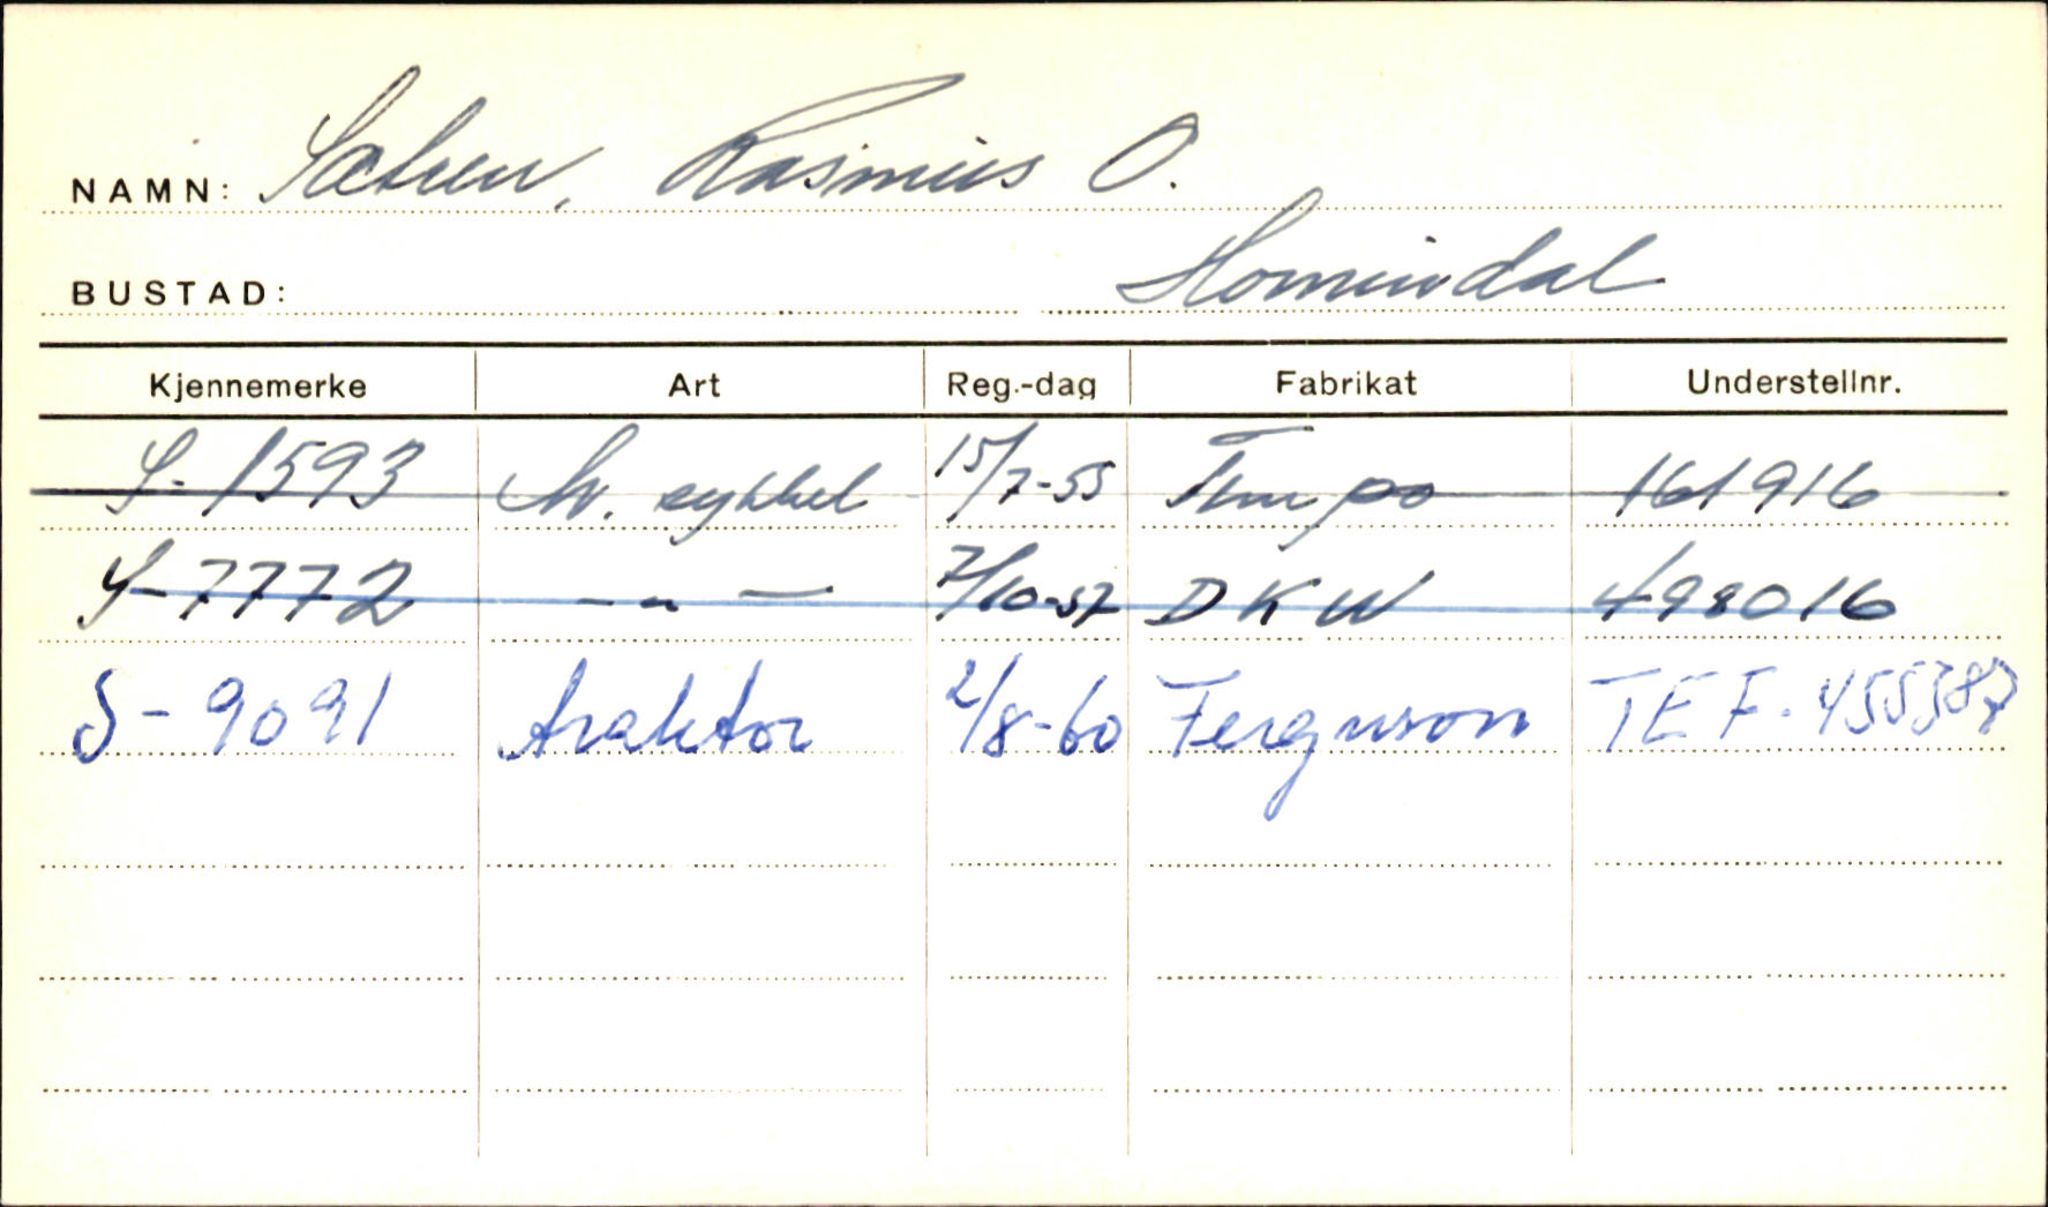 NAMN: Sætren, Rasmus O.
BUSTAD: Hornindal
Kjennemerke Art Reg.-dag Fabrikat Understellnr.
S-1593 M. sykkel 15/7-55 Tempo 161916
S-7772 -"- 7/10-57 DKW 498016
S-9091 traktor 2/8-60 Ferguson TEF.455387